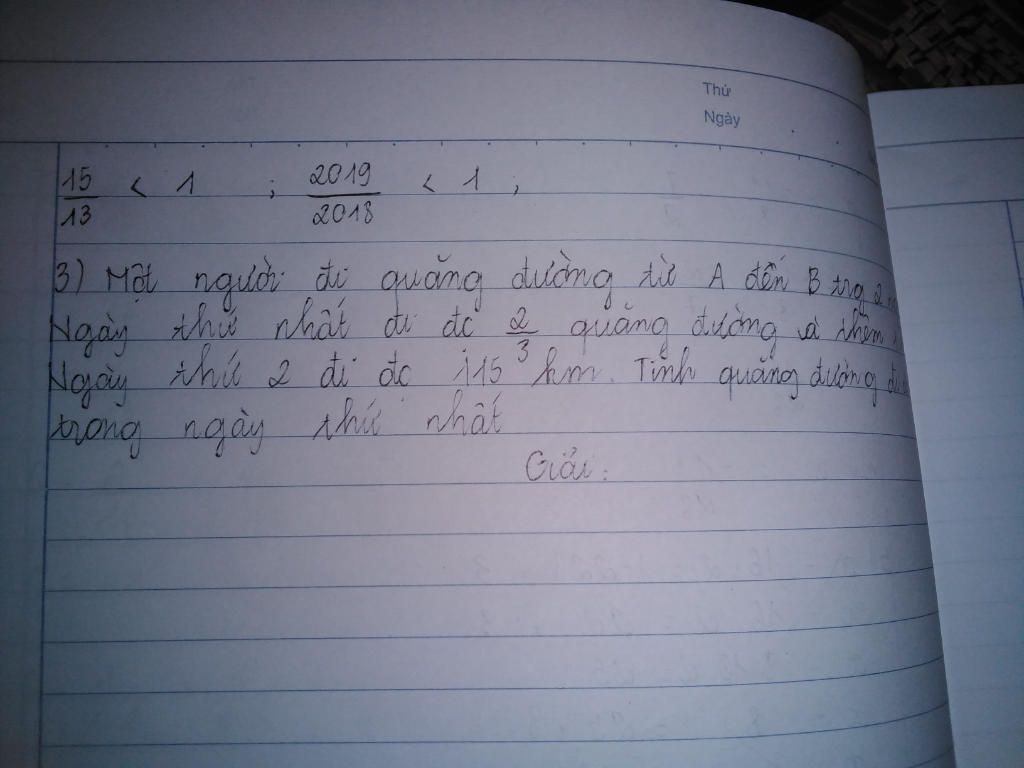 Thứ
Ngày
15/13 < 1 ; 2019/2018 < 1 ;
3) Một người đi quãng đường từ A đến B trg 2
Ngày thứ nhất đi đc 2/3 quãng đường và thêm
Ngày thứ 2 đi đc 115 km. Tính quãng đường
trong ngày thứ nhất
Giải: